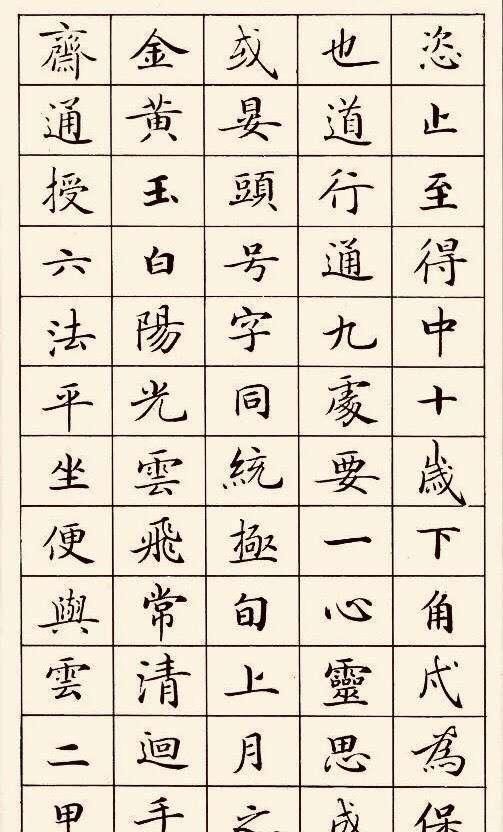 恣止至得中十歲下角為保
也道行通九處要一心靈思成
或晏頭号字同統極旬上月之
金黃玉白陽光雲飛常清迴手
齋通授六法平坐便與雲二甲